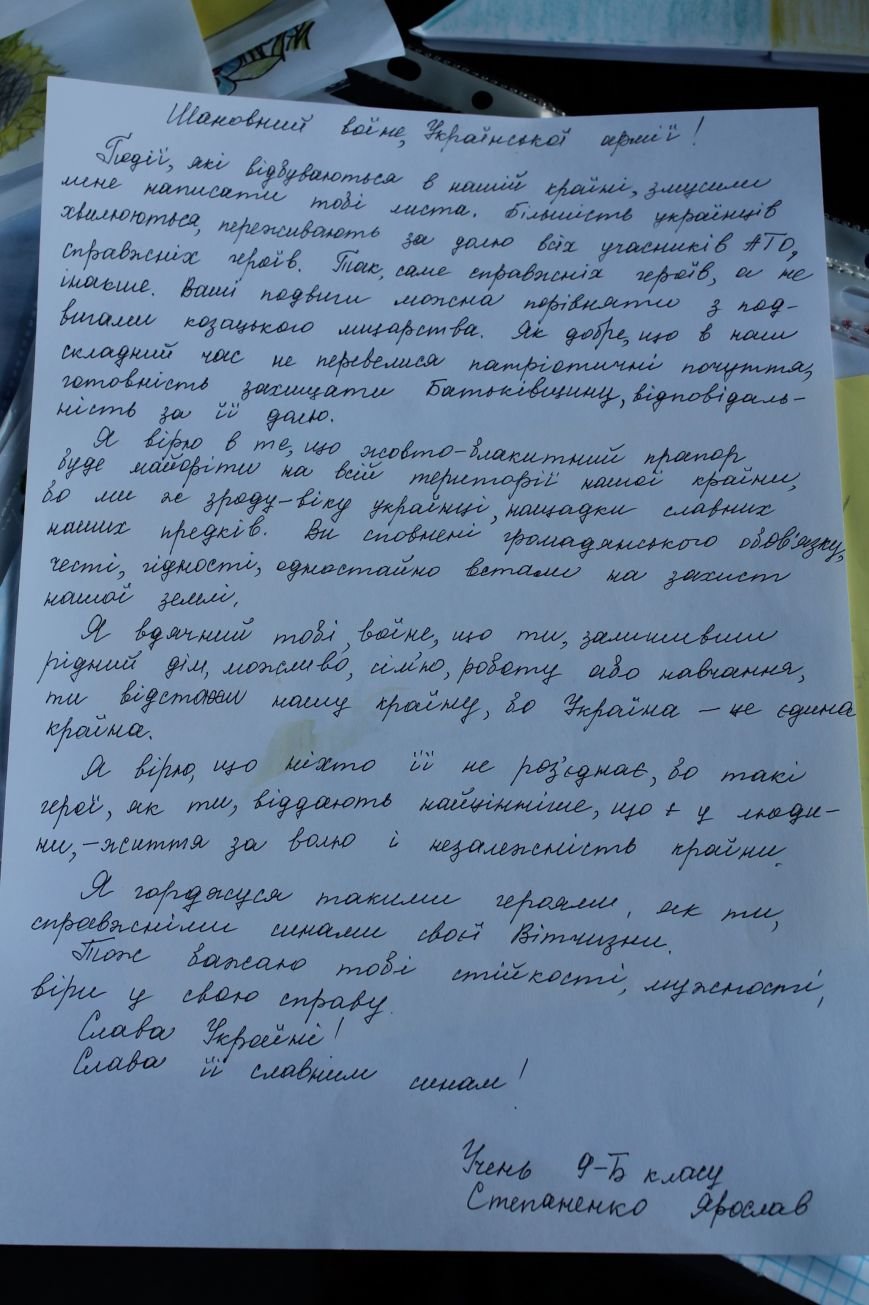 Шановний воїне, Української армії!
Події, які відбуваються в нашій країні, змусили
мене написати тобі листа. Більшість українців
хвилюються, переживають за долю всіх учасників АТО,
справжніх героїв. Так, саме справжніх героїв, а не
інакше. Ваші подвиги можна порівняти з под-
вигами козацького лицарства. Як добре, що в наш
складний час не перевелися патріотичні почуття,
готовність захищати Батьківщину, відповідаль-
ність за її долю.
Я вірю в те, що жовто-блакитний прапор
буде майоріти на всій території нашої країни,
бо ми ж зроду-віку українці, нащадки славних
наших предків. Ви сповнені громадянського обов'язку,
честі, гідності, одностайно встали на захист
нашої землі.
Я вдячний тобі, воїне, що ти, залишивши
рідний дім, можливо, сім'ю, роботу або навчання,
ти відстояв нашу країну, бо Україна – це єдина
країна.
Я вірю, що ніхто її не роз'єднає, бо такі
герої, як ти, віддають найцінніше, що є у люди-
ни, – життя за волю і незалежність країни.
Я горджуся такими героями, як ти,
справжніми синами своєї Вітчизни.
Тож бажаю тобі стійкості, мужності,
віри у свою справу.
Слава Україні!
Слава її славним синам!
Учень 9-Б класу
Степаненко Ярослав